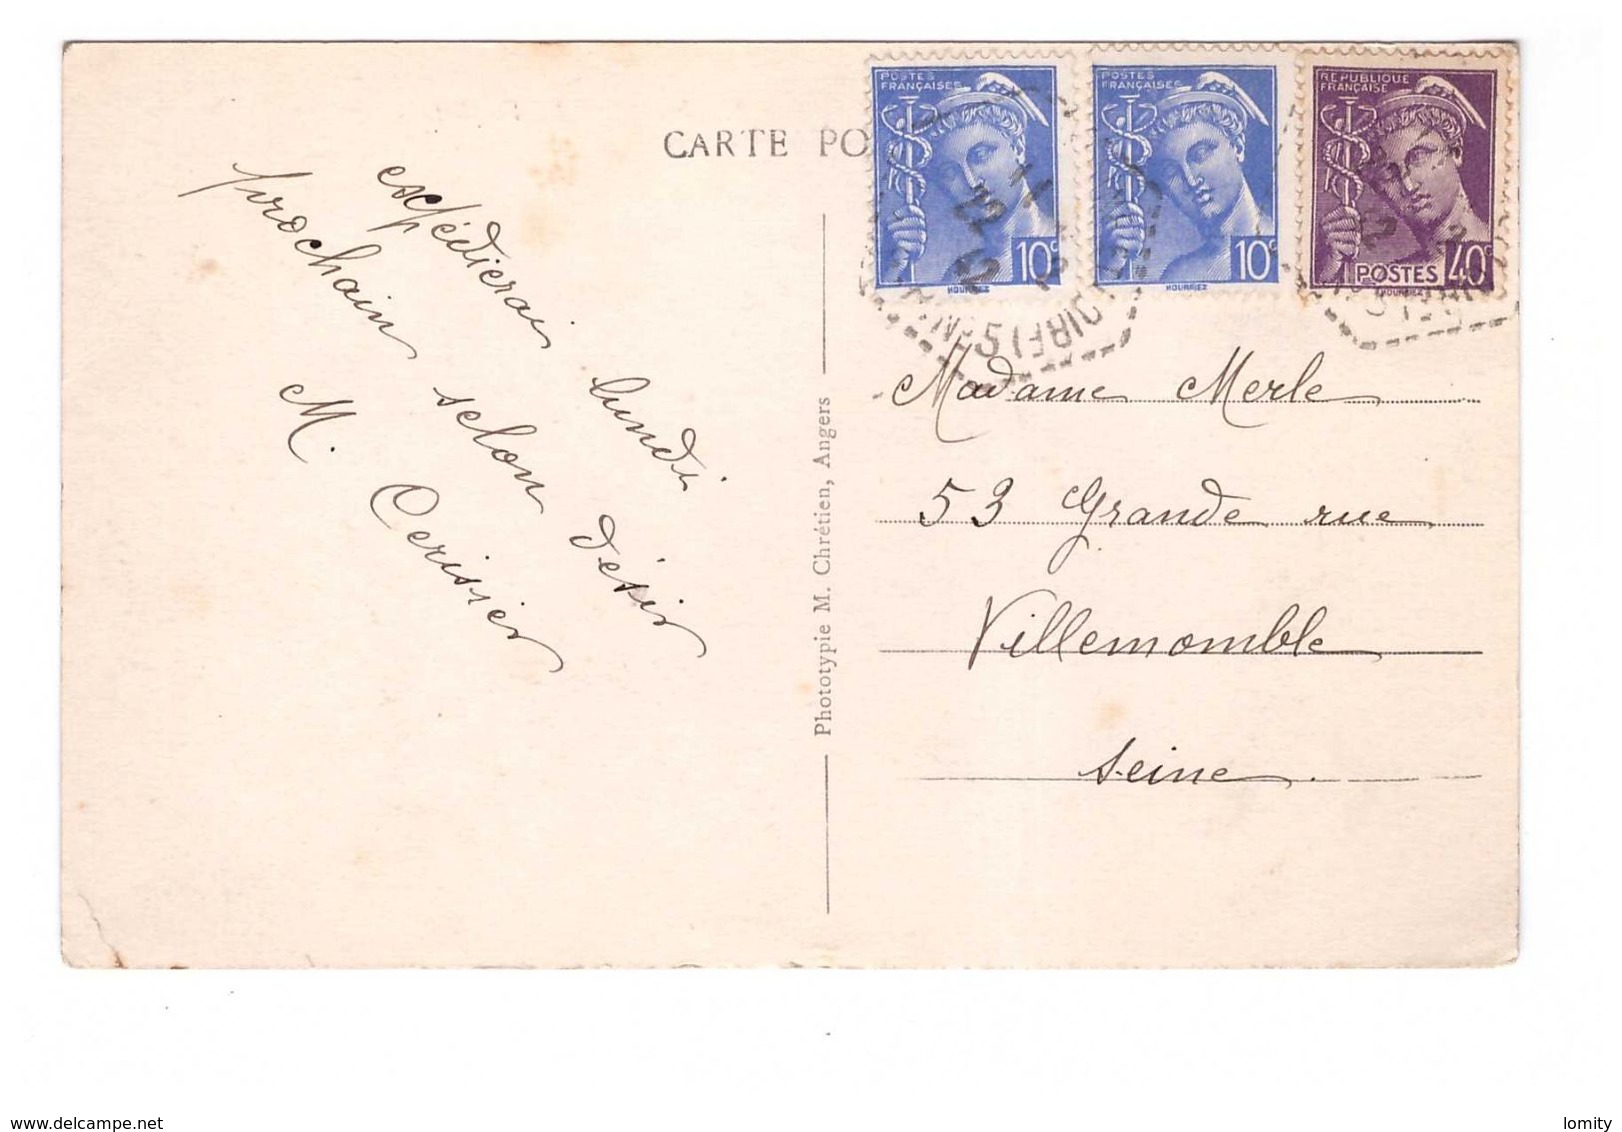 CARTE PO
POSTES
FRANÇAISES
10c
HOURRIEZ
POSTES
FRANÇAISES
10c
HOURRIEZ
REPUBLIQUE
FRANÇAISE
POSTES 40c
HOURRIEZ
expédierai lundi
prochain selon désir
M. Cerisier
Phototypie M. Chrétien, Angers
Madame Merle
53 Grande rue
Villemomble
Seine
delcampe.net
lomity